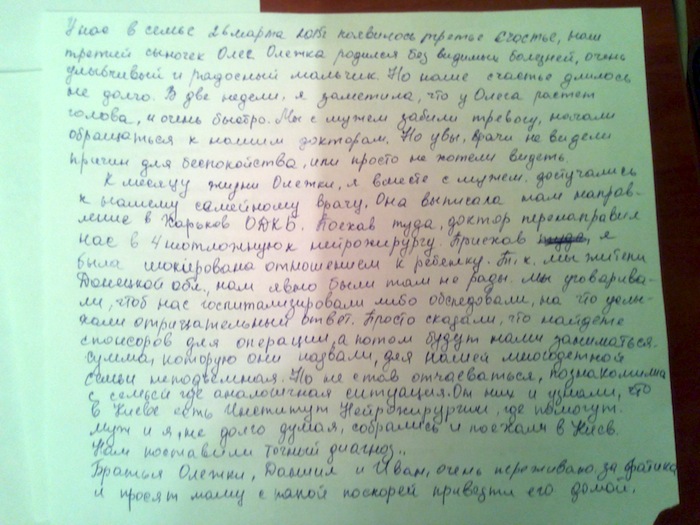 У нас в семье 26 марта 2015г появилось третье счастье, наш
третий сыночек Олег. Олежка родился без видимых болезней, очень
улыбчивый и радосный мальчик. Но наше счастье длилось
не долго. В две недели, я заметила, что у Олега растет
голова, и очень быстро. Мы с мужем забили тревогу, начали
обращаться к нашим докторам. Но увы, врачи не видели
причин для беспокойства, или просто не хотели видеть.
К месяцу жизни Олежки, я вместе с мужем, достучались
к нашему семейному врачу. Она выписала нам направ-
ление в Харьков ОДКБ. Поехав туда, доктор перенаправил
нас в 4 неотложную к нейрохирургу. Приехав я
была шокирована отношением к ребенку. Т.к. мы жители
Донецкой обл., нам явно были там не рады. Мы уговарива-
ли, чтоб нас госпитализировали либо обследовали, на что услы-
хали отрицательный ответ. Просто сказали, что найдете
спонсоров для операции, а потом будут нами заниматься.
Сумма, которую они назвали, для нашей многодетной
семьи неподъемная. Но не став отчаеваться, познакомились
с семьей где аналогичная ситуация. От них и узнали, что
в Киеве есть Институт Нейрохирургии, где помогут.
Муж и я, не долго думая, собрались и поехали в Киев.
Нам поставили точный диагноз..
Братья Олежки, Даниил и Иван, очень переживают за братика
и просят маму с папой поскорей привезти его домой.